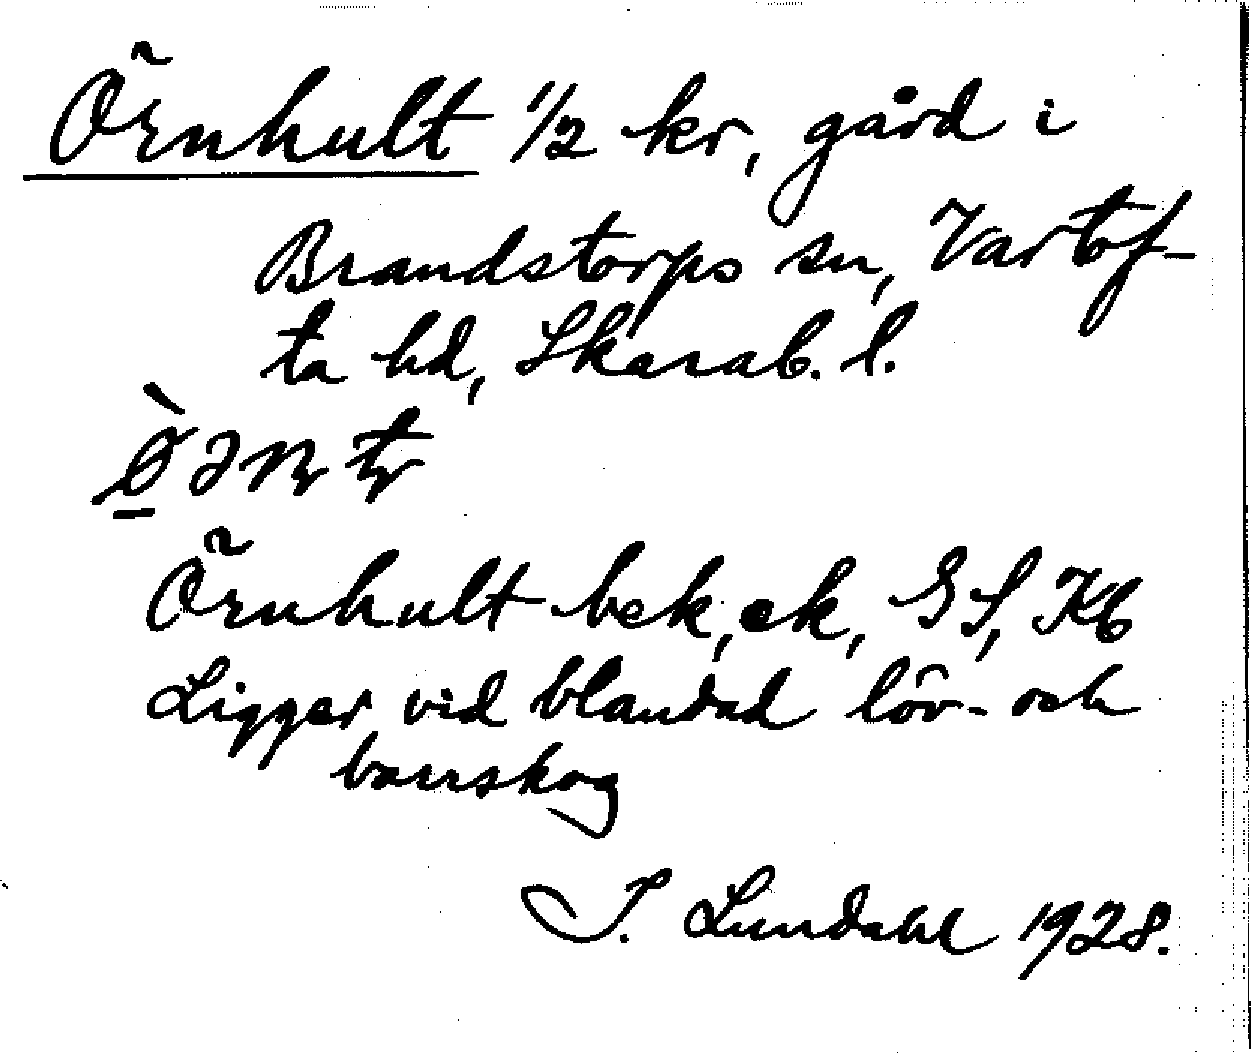 Örnhult 1/2 kr, gård i
Brandstorps sn, Vartof-
ta hd, Skarab. l.
Örnhult bek, ek, GS, Kb
Ligger vid blandad löv- och
barrskog
I. Lundahl 1928.